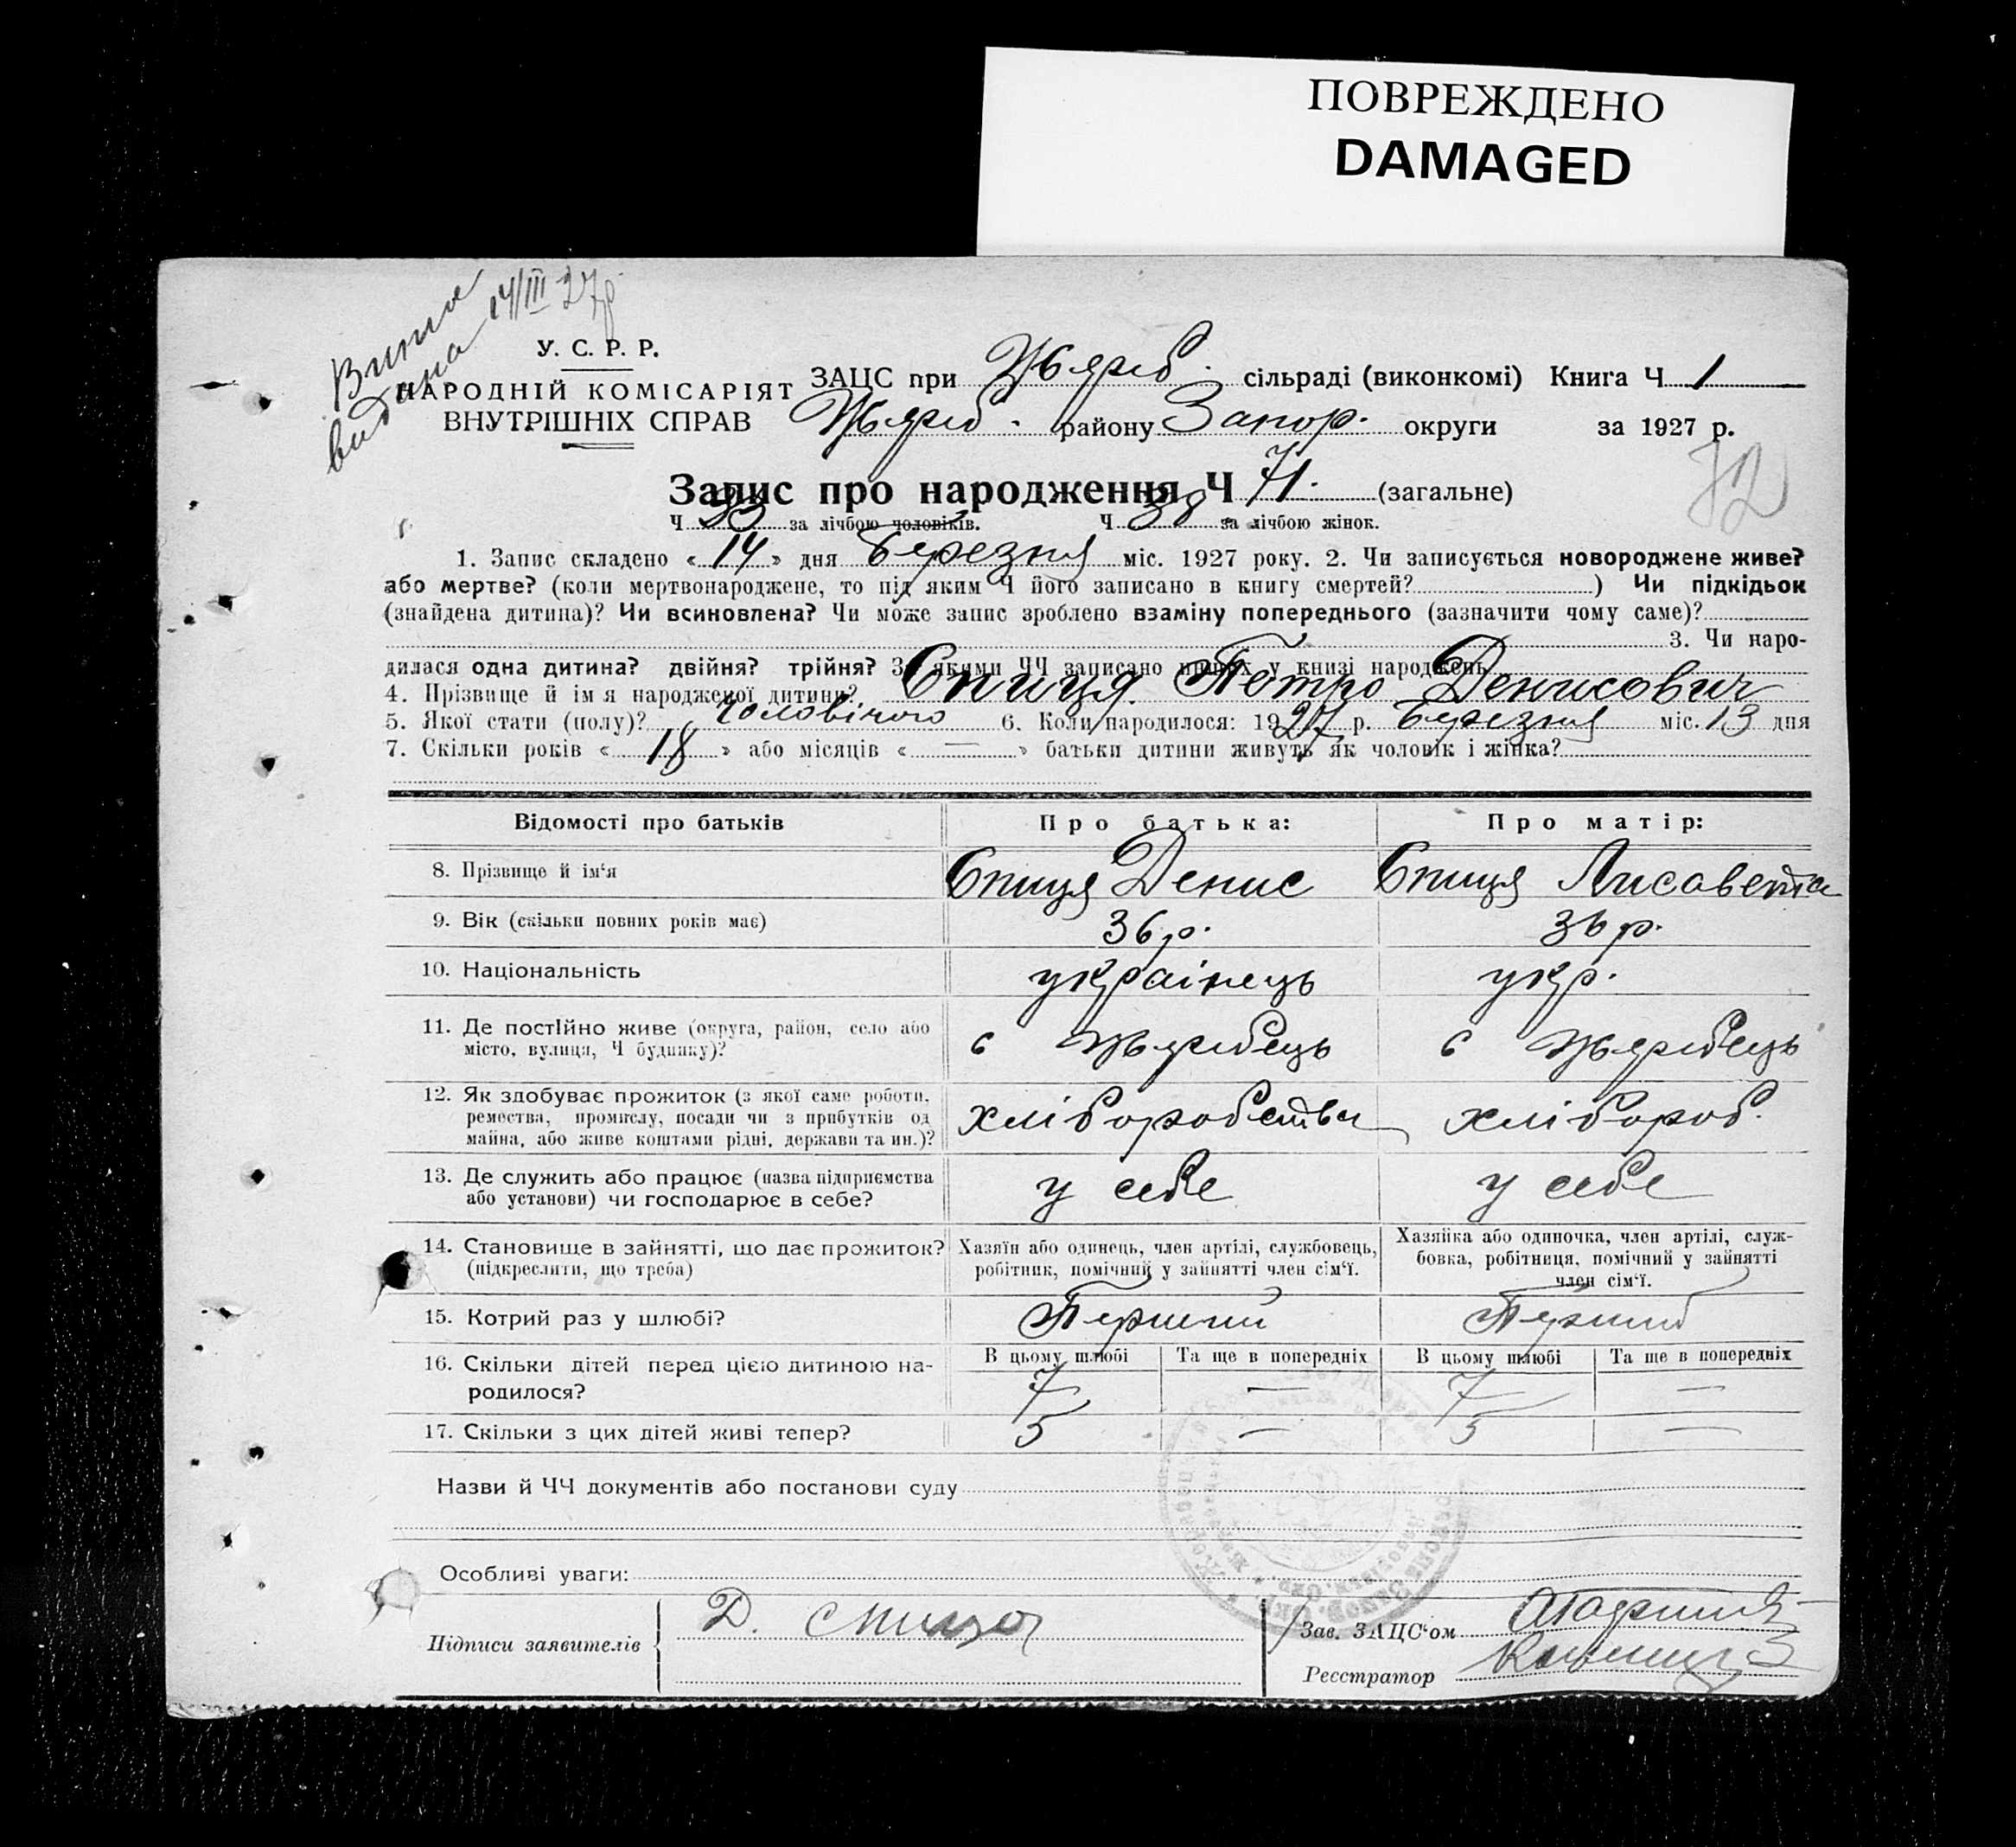 ПОВРЕЖДЕНО
DAMAGED
Випис
видано 14/III 27р
У. С. Р. Р.
НАРОДНІЙ КОМІСАРІЯТ
ВНУТРІШНІХ СПРАВ
ЗАЦС при Жереб. сільраді (виконкомі) Книга Ч 1
Жереб. району Запор. округи за 1927 р.
72
Запис про народження Ч 71. (загальне)
Ч 33 за лічбою чоловіків. Ч 38 за лічбою жінок.
1. Запис складено « 14 » дня Березня міс. 1927 року. 2. Чи записується новороджене живе?
або мертве? (коли мертвонароджене, то під яким Ч його записано в книгу смертей? ) Чи підкідьок
(знайдена дитина)? Чи всиновлена? Чи може запис зроблено взаміну попереднього (зазначити чому саме)?
3. Чи наро-
дилася одна дитина? двійня? трійня? З якими ЧЧ записано инших у книзі народжень
4. Прізвище й ім я народженої дитини? Спиця Петро Денисович
5. Якої стати (полу)? чоловічого 6. Коли народилося: 1927 р. Березня міс. 13 дня
7. Скільки років « 18 » або місяців « — » батьки дитини живуть як чоловік і жінка?
Відомості про батьків Про батька: Про матір:
8. Прізвище й ім‘я Спиця Денис Спиця Лисавета
9. Вік (скільки повних років має) 36 р. 36 р.
10. Національність українець укр.
11. Де постійно живе (округа, район, село або
місто, вулиця, Ч будинку)? с Жеребець с Жеребець
12. Як здобуває прожиток (з якої саме роботи,
ремества, промислу, посади чи з прибутків од
майна, або живе коштами рідні, держави та ин.)? хліборобства хлібороб.
13. Де служить або працює (назва підприємства
або установи) чи господарює в себе? у себе у себе
14. Становище в зайнятті, що дає прожиток?
(підкреслити, що треба)
Хазяїн або одинець, член артілі, службовець,
робітник, помічний у зайнятті член сім‘ї.
Хазяйка або одиночка, член артілі, служ-
бовка, робітниця, помічний у зайнятті
член сім‘ї.
15. Котрий раз у шлюбі? Перший Перший
В цьому шлюбі Та ще в попередніх В цьому шлюбі Та ще в попередніх
16. Скільки дітей перед цією дитиною на-
родилося? 7 — 7 —
17. Скільки з цих дітей живі тепер? 5 — 5 —
Назви й ЧЧ документів або постанови суду
Особливі уваги:
Підписи заявителів Д. Спица
Зав. ЗАЦС‘ом
Реєстратор